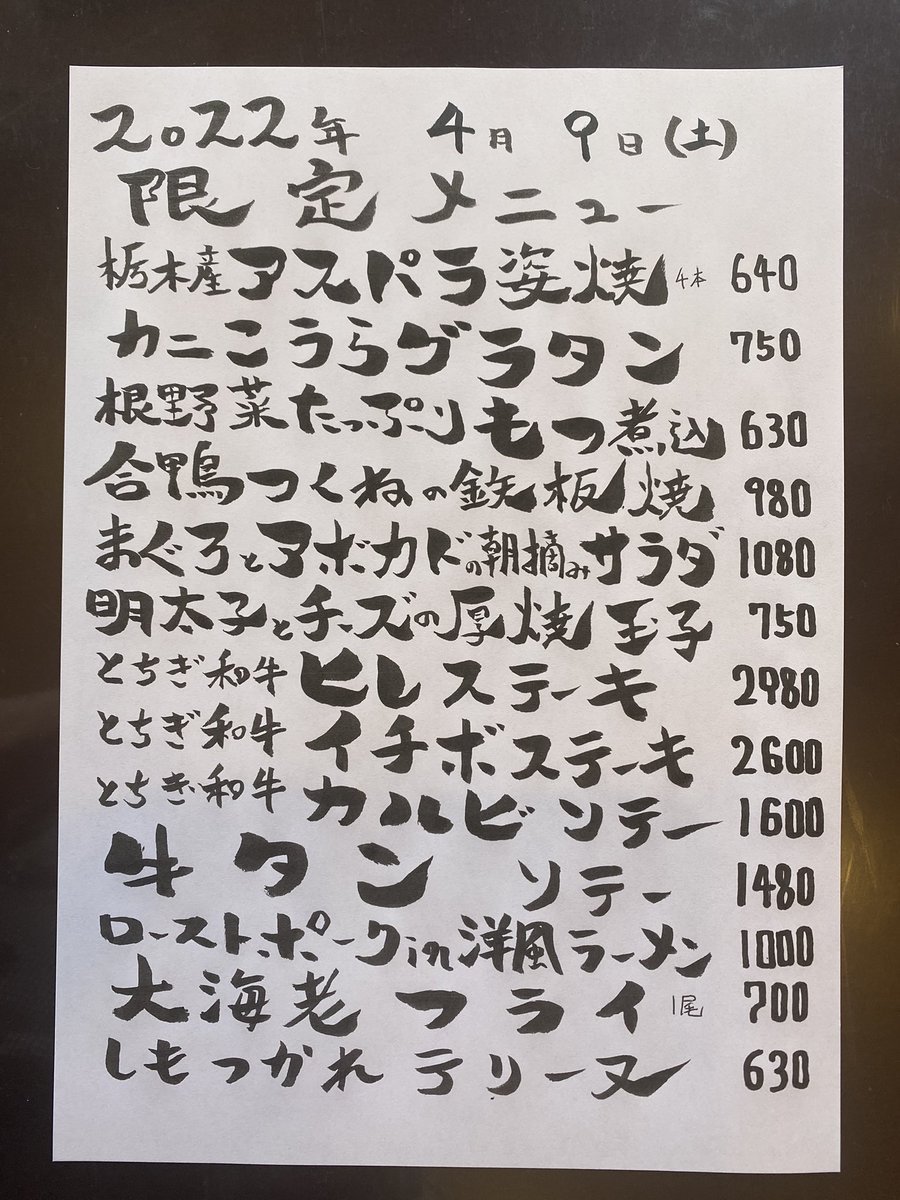 2022年 4月 9日(土)
限定メニュー
栃木産アスパラ姿焼 4本 640
カニこうらグラタン 750
根野菜たっぷりもつ煮込 630
合鴨つくねの鉄板焼 980
まぐろとアボカドの朝摘みサラダ 1080
明太子とチーズの厚焼玉子 750
とちぎ和牛 ヒレステーキ 2980
とちぎ和牛 イチボステーキ 2600
とちぎ和牛 カルビソテー 1600
牛タン ソテー 1480
ローストポークin洋風ラーメン 1000
大海老フライ 1尾 700
しもつかれテリーヌ 630